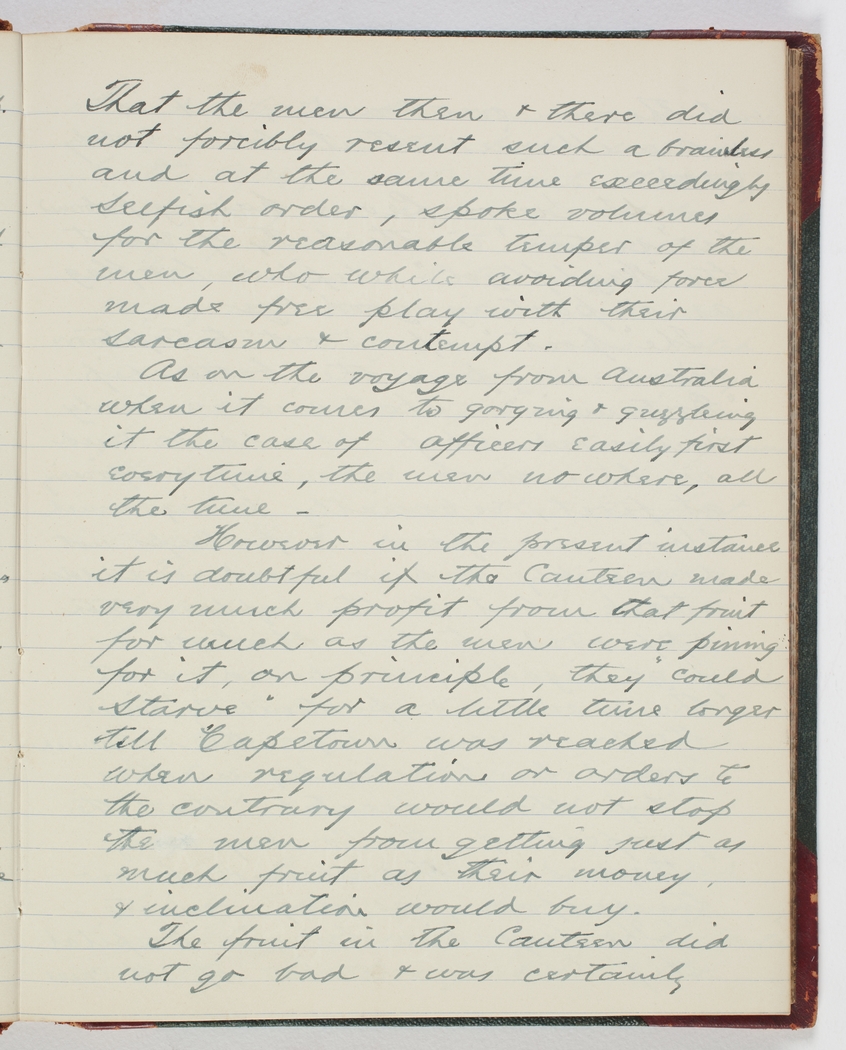 That the men then & there did
not forcibly resent such a brainless
and at the same time exceedingly
selfish order, spoke volumes
for the reasonable temper of the
men, who while avoiding force
made free play with their
sarcasm & contempt.
As on the voyage from Australia
when it comes to gorging & guzzleing
it the case of officers easily first
everytime, the men nowhere, all
the time -
However in the present instance
it is doubtful if the Canteen made
very much profit from that fruit
for much as the men were pining
for it, on principle, they "could
starve" for a little time longer
till Capetown was reached
when regulation or orders to
the contrary would not stop
the men from getting just as
much fruit as their money,
& inclination would buy.
The fruit in the Canteen did
not go bad & was certainly